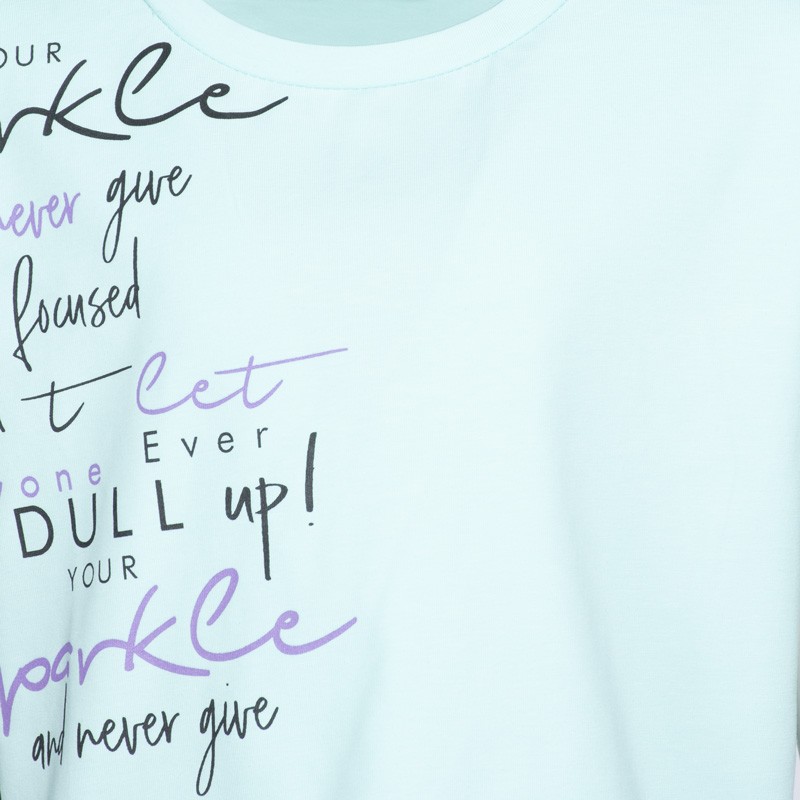 YOUR
rkle
never give
focused
t let
Ever
yone
DULL up!
YOUR
Sparkle
and never give